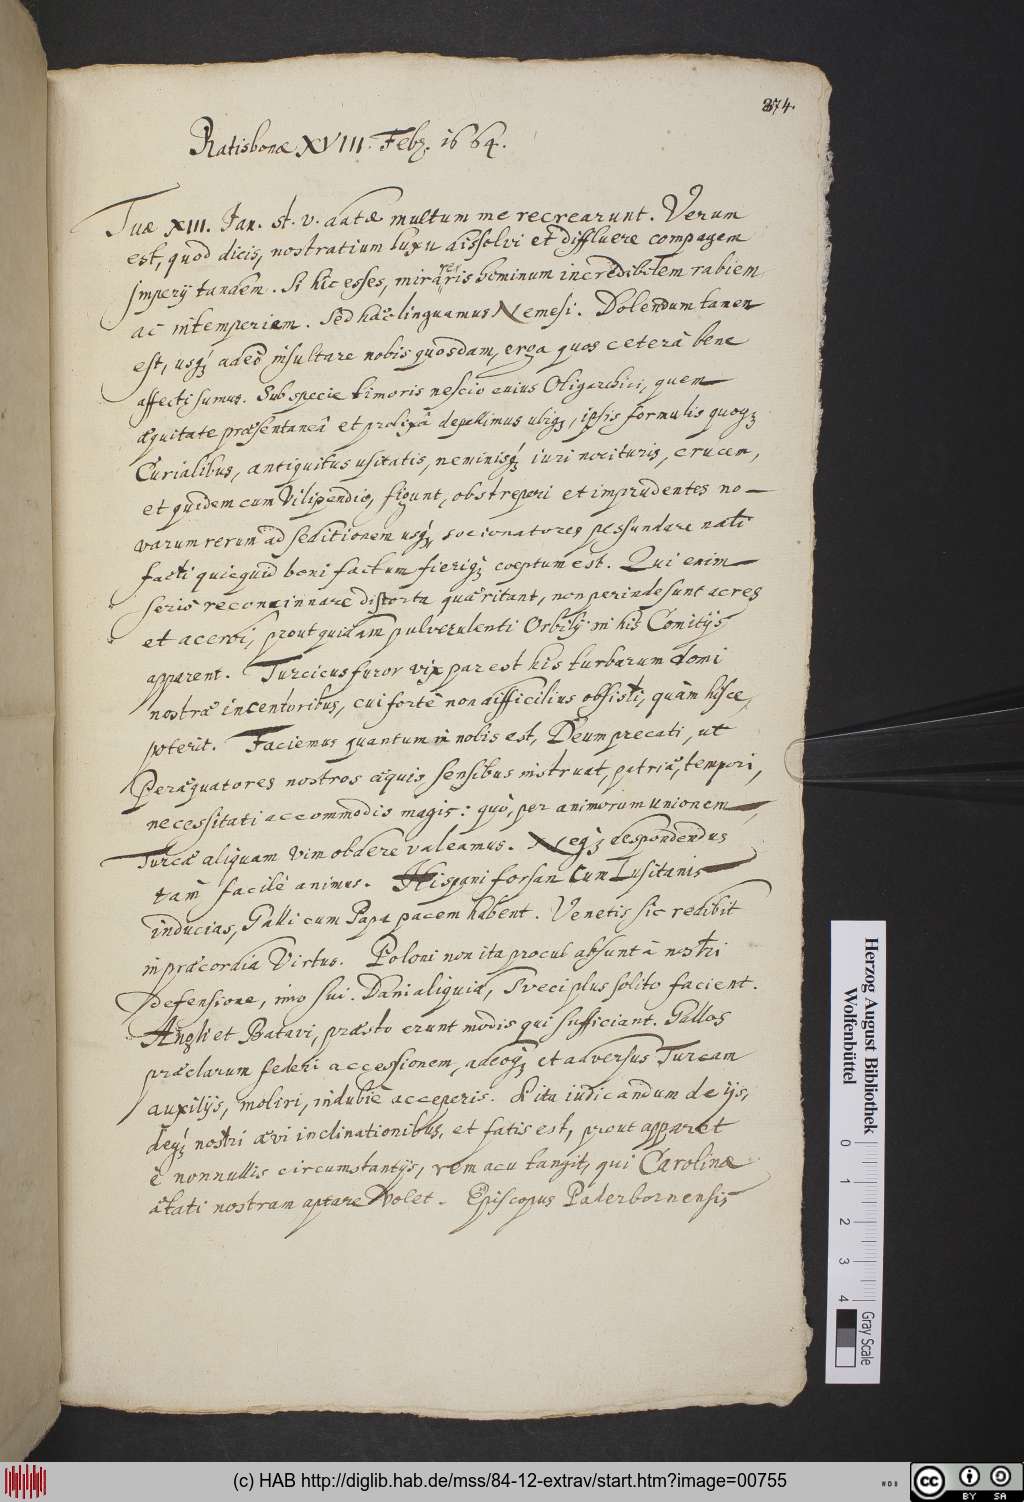 374.
Ratisbonæ XVIII. Febr. 1664.
Tuæ XIII. Jan. st. v. datæ multum me recrearunt. Verum
est, quod dicis, nostratium luxu dissolvi et diffluere compagem
Jmperij tandem. Si hic esses, mirareris hominum incredibilem rabiem
ac intemperiem. Sed hæc linquamus Nemesi. Dolendum tamen
est, usq; adeò insultare nobis quosdam, erga quos ceterà bene
affecti sumus. Sub specie timoris nescio cuius Oligarchici, quem
æquitate præsentaneâ et prolixâ depellimus ubiq;, ipsis formulis quoq;
Curialibus, antiquitus usitatis, neminisq; iuri nocituris, crucem,
et quidem cum Vilipendio, figunt, obstreperi et imprudentes no-
varum rerum ad seditionem usq; pessundare nati
facti quicquid boni factum fieriq; coeptum est. Qui enim
seriò reconcinnare distorta quæritant, non perinde sunt acres
et acerbi, prout quidam pulverulenti Orbilij in his Comitijs
apparent. Turcicus furor vix par est his turbarum domi
nostræ incentoribus, cui fortè non difficilius obsisti, quàm hisce,
poterit. Faciemus quantum in nobis est, Deum precati, ut
Peræquatores nostros æquis sensibus instruat, patriæ, tempori,
necessitati accommodis magis: quò, per animorum unionem,
Turcæ aliquam vim obdere valeamus. Neq; despondendus
tam facilè animus. Hispani forsan cum Lusitanis
inducias, Galli cum Papa pacem habent. Venetis sic redibit
in præcordia Virtus. Poloni non ita procul absunt à nostri
defensione, imo sui. Dani aliquid, Sveci plus solito facient.
Angli et Batavi, præsto erunt modis qui sufficiant. Gallos
præclarum federi accessionem, adeoq; et adversus Turcam
auxilijs, moliri, indubiè acceperis. Si ita iudicandum de ijs,
deq; nostri ævi inclinationibus, et fatis est, prout apparet
è nonnullis circumstantijs, rem acu tangit, qui Carolinæ
ætati nostram aptare volet. Episcopus Paderbornensis
Herzog August Bibliothek
Wolfenbüttel
0 1 2 3 4
Gray Scale
(c) HAB http://diglib.hab.de/mss/84-12-extrav/start.htm?image=00755
cc BY SA